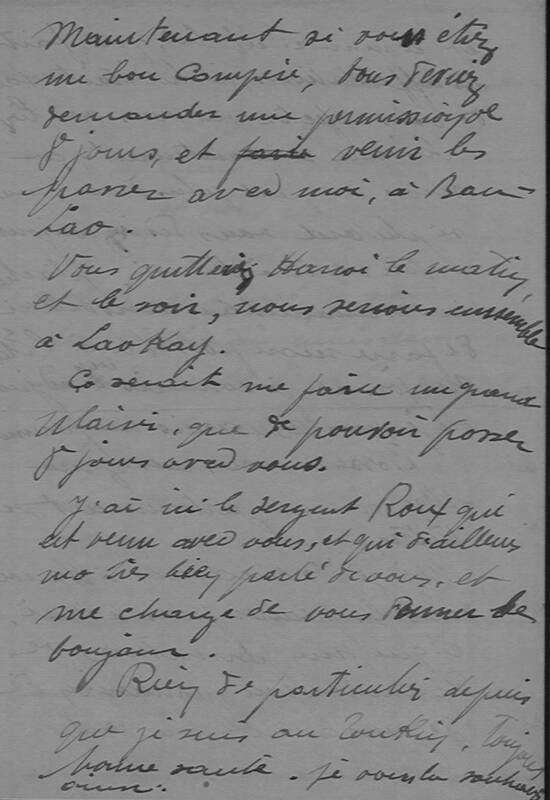 Maintenant si vous étiez
me bon Compère, vous devriez
demander une permission de
8 jours, et faire venir les
passer avec moi, à Bau-
Lao.
Vous quitteriez Hanoï le matin,
et le soir, nous serions ensemble
à LaoKay.
Ça serait me faire un grand
plaisir, que de pouvoir passer
8 jours avec vous.
J'ai ici le sergent Roux qui
est venu avec vous, et qui d'ailleurs
ma très bien parlé de vous, et
me charge de vous donner le
bonjour.
Rien de particulier depuis
que je suis au Tonkin. Toujours
bonne santé. je vous la souhaite